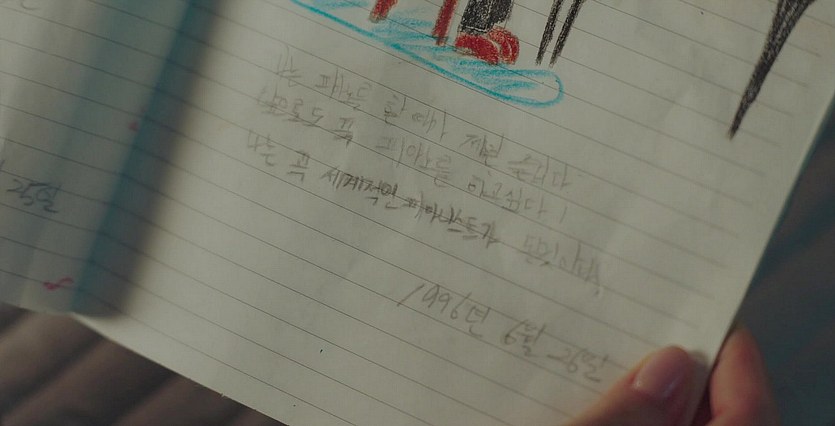 나는 피아노를 칠 때가 제일 좋다
앞으로도 꼭 피아노를 치고싶다!
나는 꼭 세계적인 피아니스트가
1996년 6월 26일
25일